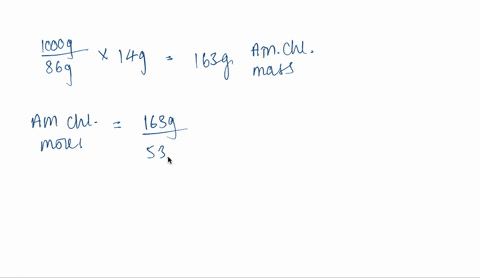 1000g/86g × 14g = 163g Am. Chl. mass
Am Chl. moles = 163g/53